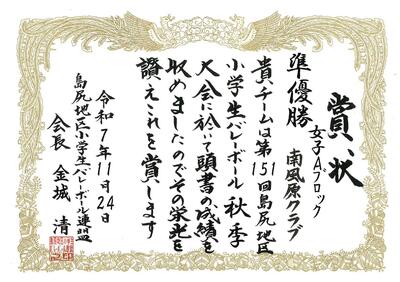 賞状
女子Aブロック
準優勝 南風原クラブ
貴チームは第151回島尻地区
小学生バレーボール秋季
大会に於いて頭書の成績を
収めましたのでその栄光を
讃えこれを賞します
令和7年11月24日
島尻地区小学生バレーボール連盟
会長 金城 清